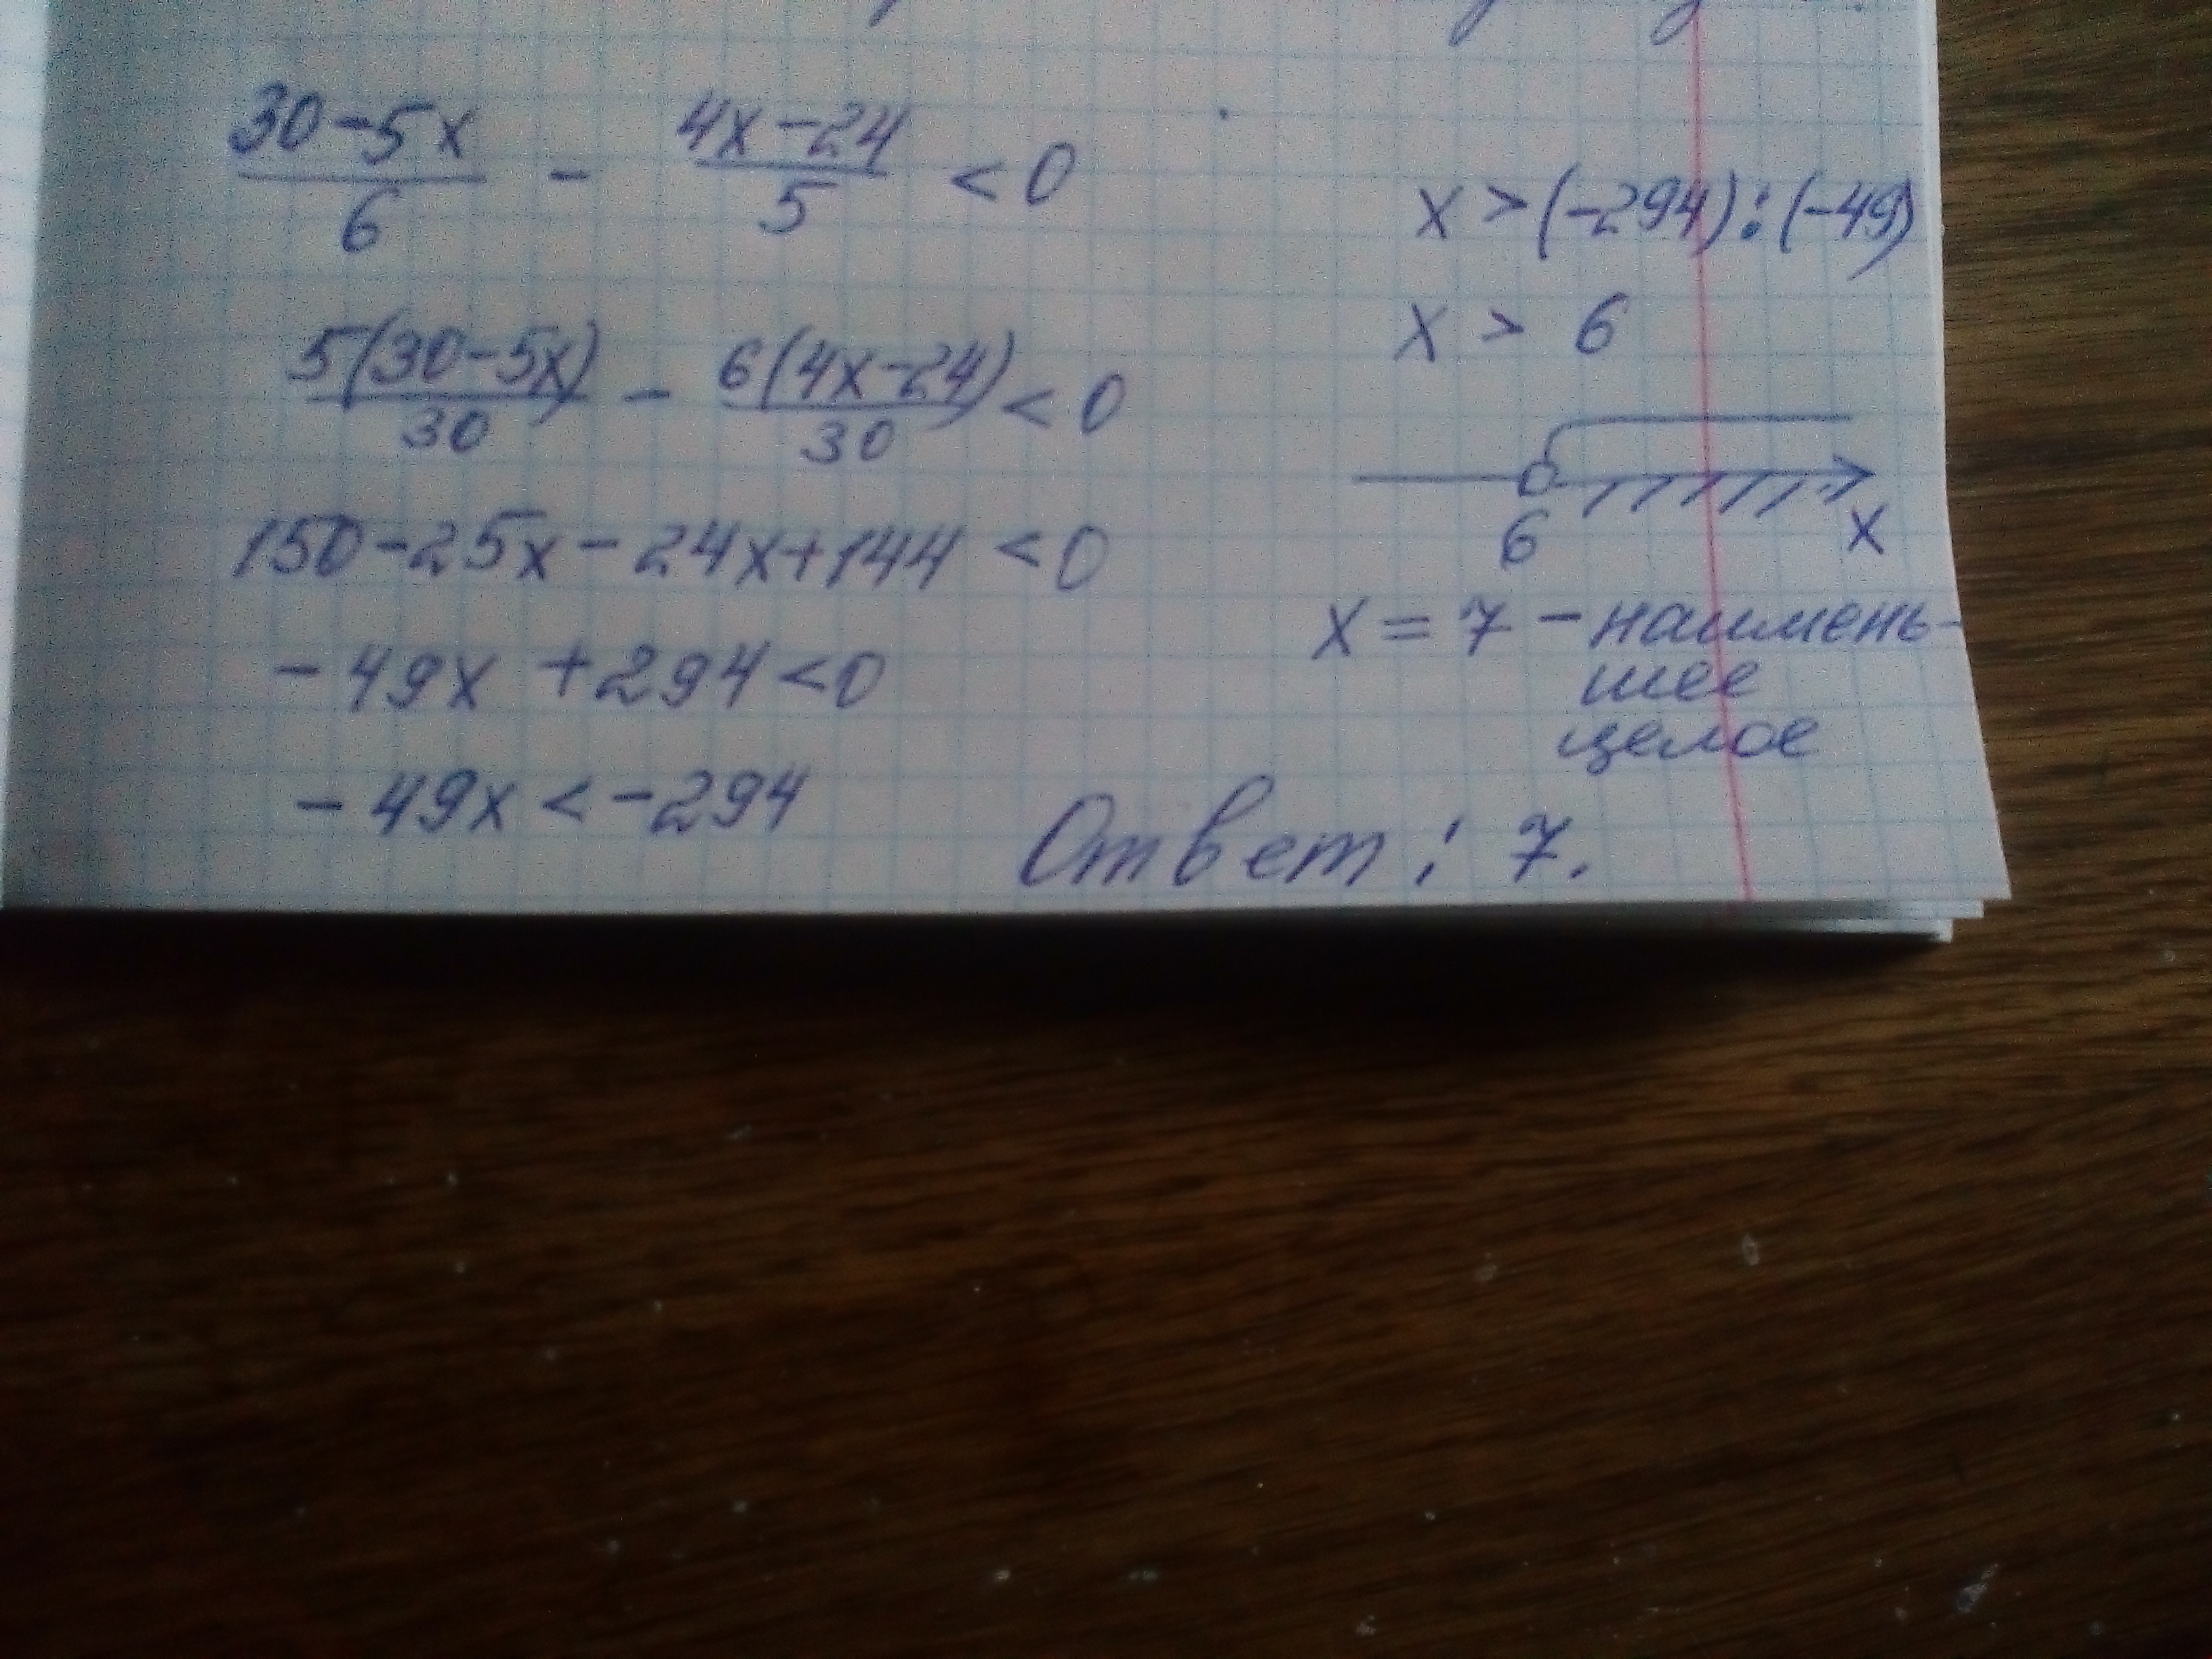 30-5x/6 - 4x-24/5 < 0
5(30-5x)/30 - 6(4x-24)/30 < 0
150-25x-24x+144 < 0
-49x +294<0
-49x < -294
x > (-294):(-49)
x > 6
6 x
x = 7 - наимень-
шее
целое
Ответ: 7.